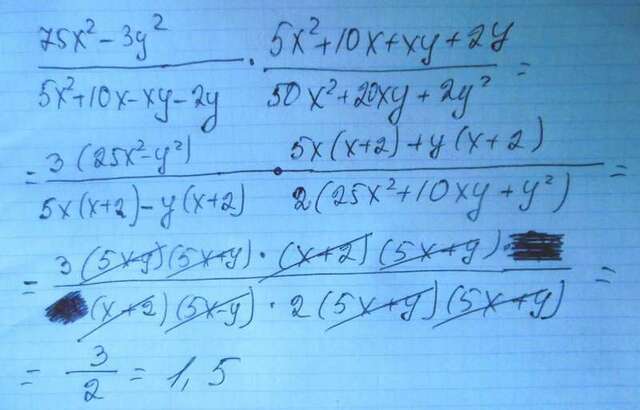 (75x² - 3y²)/(5x² + 10x - xy - 2y) · (5x² + 10x + xy + 2y)/(50x² + 20xy + 2y²) =
= 3(25x² - y²)/(5x(x+2) - y(x+2)) · (5x(x+2) + y(x+2))/(2(25x² + 10xy + y²)) =
= (3(5x-y)(5x+y) · (x+2)(5x+y))/((x+2)(5x-y) · 2(5x+y)(5x+y)) =
= 3/2 = 1,5